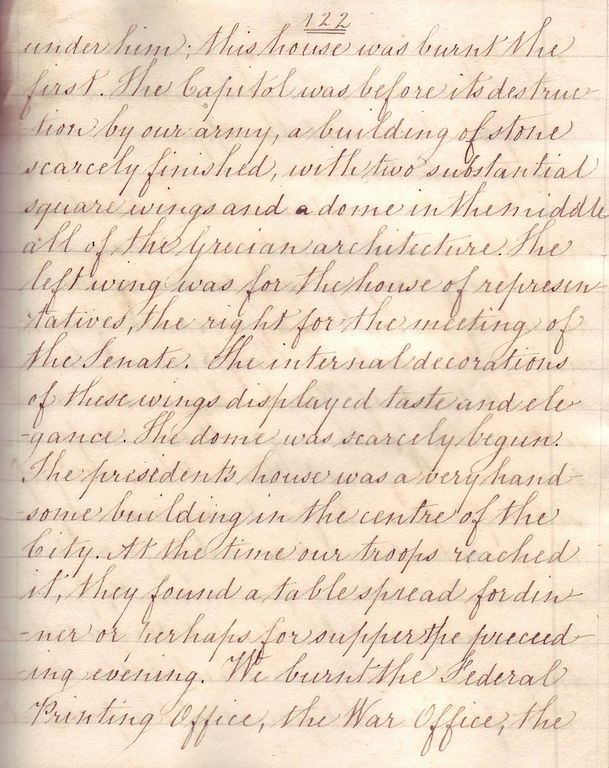 122
under him; this house was burnt the
first. The Capitol was before its destruc-
tion by our army, a building of stone
scarcely finished, with two substantial
square wings and a dome in the middle
all of the Grecian architecture. The
left wing was for the house of represen-
tatives, the right for the meeting of
the Senate. The internal decorations
of these wings displayed taste and ele-
-gance. The dome was scarcely begun.
The president's house was a very hand-
some building in the centre of the
City. At the time our troops reached
it, they found a table spread for din-
-ner or perhaps for supper the preceed-
-ing evening. We burnt the Federal
Printing Office, the War Office, the